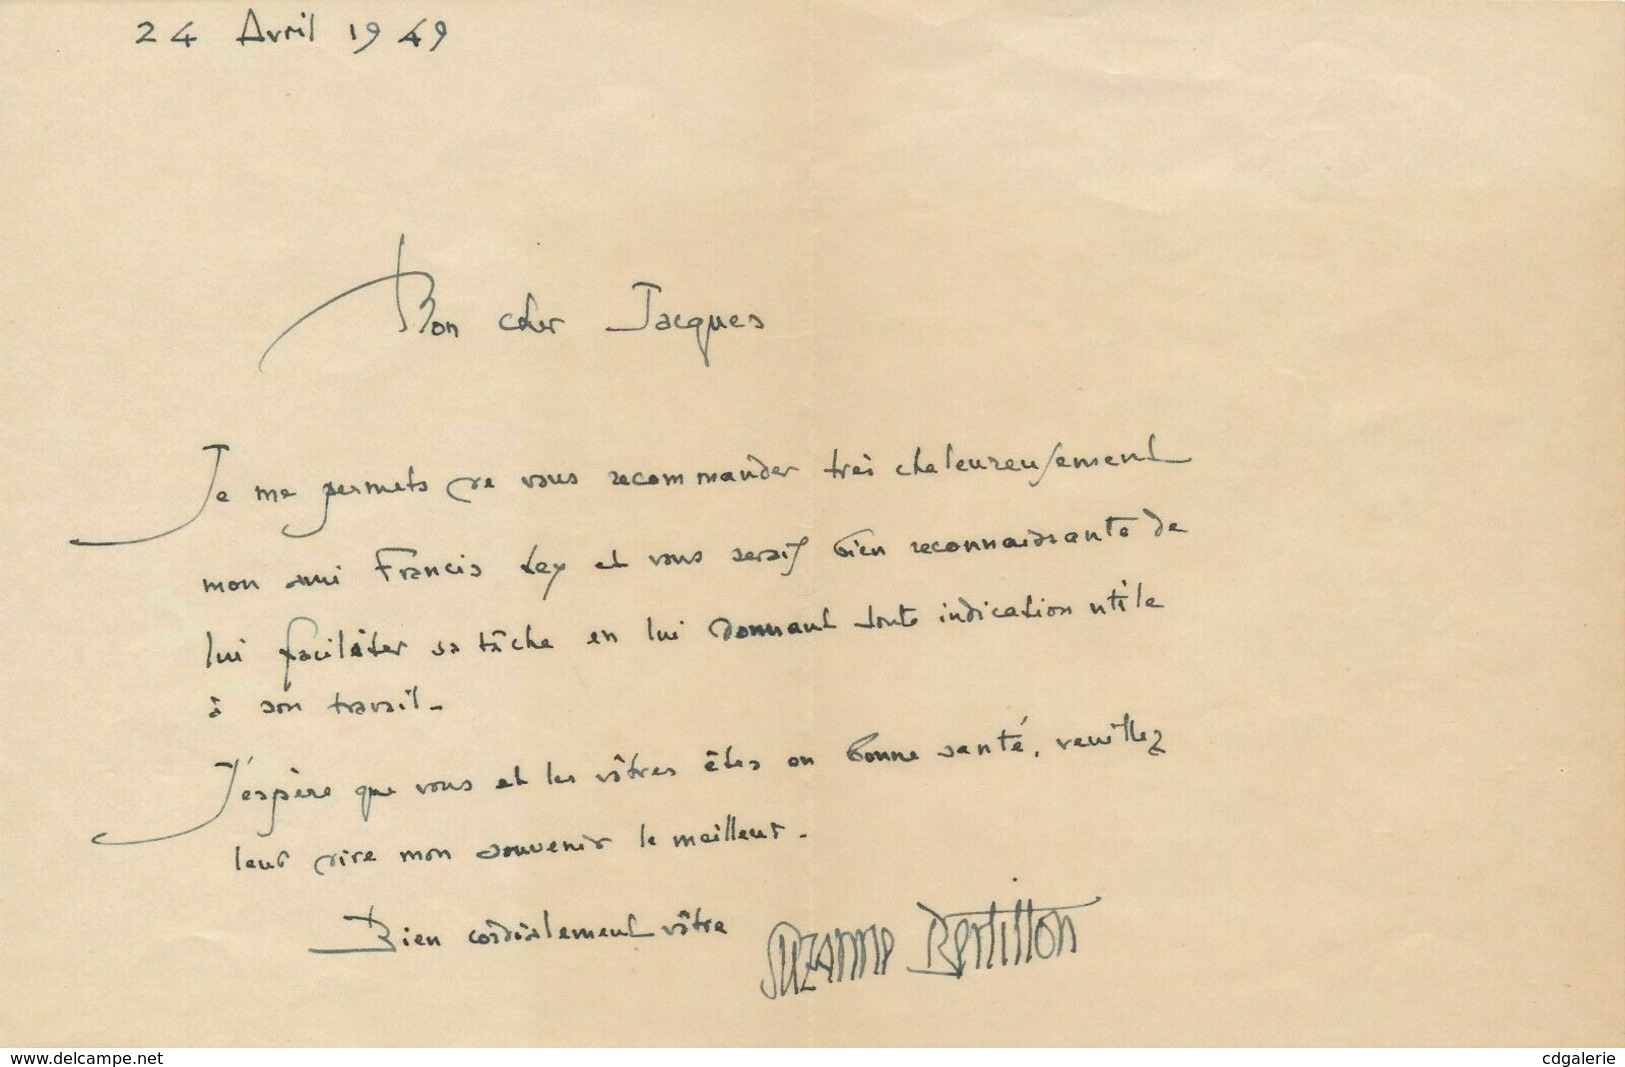 24 Avril 1949
Mon cher Jacques
Je me permets de vous recommander très chaleureusement
mon ami Francis Ley et vous serais bien reconnaissante de
lui faciliter sa tâche en lui donnant toute indication utile
à son travail -
J'espère que vous et les vôtres êtes en bonne santé, veuillez
leur dire mon souvenir le meilleur -
Bien cordialement vôtre Suzanne Bertillon
www.delcampe.net cdgalerie